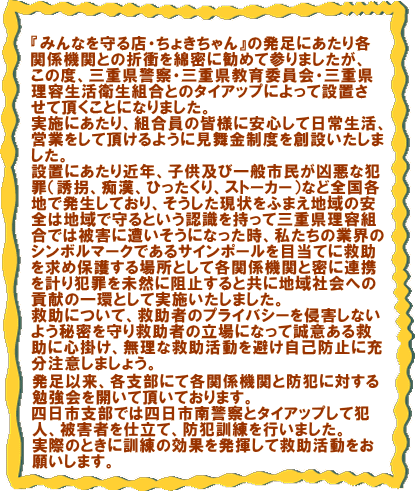 『みんなを守る店・ちょきちゃん』の発足にあたり各
関係機関との折衝を綿密に勧めて参りましたが、
この度、三重県警察・三重県教育委員会・三重県
理容生活衛生組合とのタイアップによって設置さ
せて頂くことになりました。
実施にあたり、組合員の皆様に安心して日常生活、
営業をして頂けるように見舞金制度を創設いたしま
した。
設置にあたり近年、子供及び一般市民が凶悪な犯
罪（誘拐、痴漢、ひったくり、ストーカー）など全国各
地で発生しており、そうした現状をふまえ地域の安
全は地域で守るという認識を持って三重県理容組
合では被害に遭いそうになった時、私たちの業界の
シンボルマークであるサインポールを目当てに救助
を求め保護する場所として各関係機関と密に連携
を計り犯罪を未然に阻止すると共に地域社会への
貢献の一環として実施いたしました。
救助について、救助者のプライバシーを侵害しない
よう秘密を守り救助者の立場になって誠意ある救
助に心掛け、無理な救助活動を避け自己防止に充
分注意しましょう。
発足以来、各支部にて各関係機関と防犯に対する
勉強会を開いて頂いております。
四日市支部では四日市南警察とタイアップして犯
人、被害者を仕立て、防犯訓練を行いました。
実際のときに訓練の効果を発揮して救助活動をお
願いします。